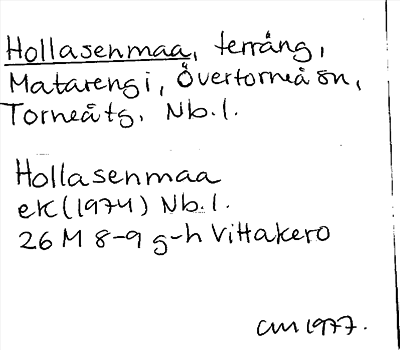 Hollasenmaa, terräng,
Matarengi, Övertorneå sn,
Torneåtg, Nb.l.
Hollasenmaa
ek (1974) Nb.l.
26 M 8-9 g-h Vittakero
CM 1977.